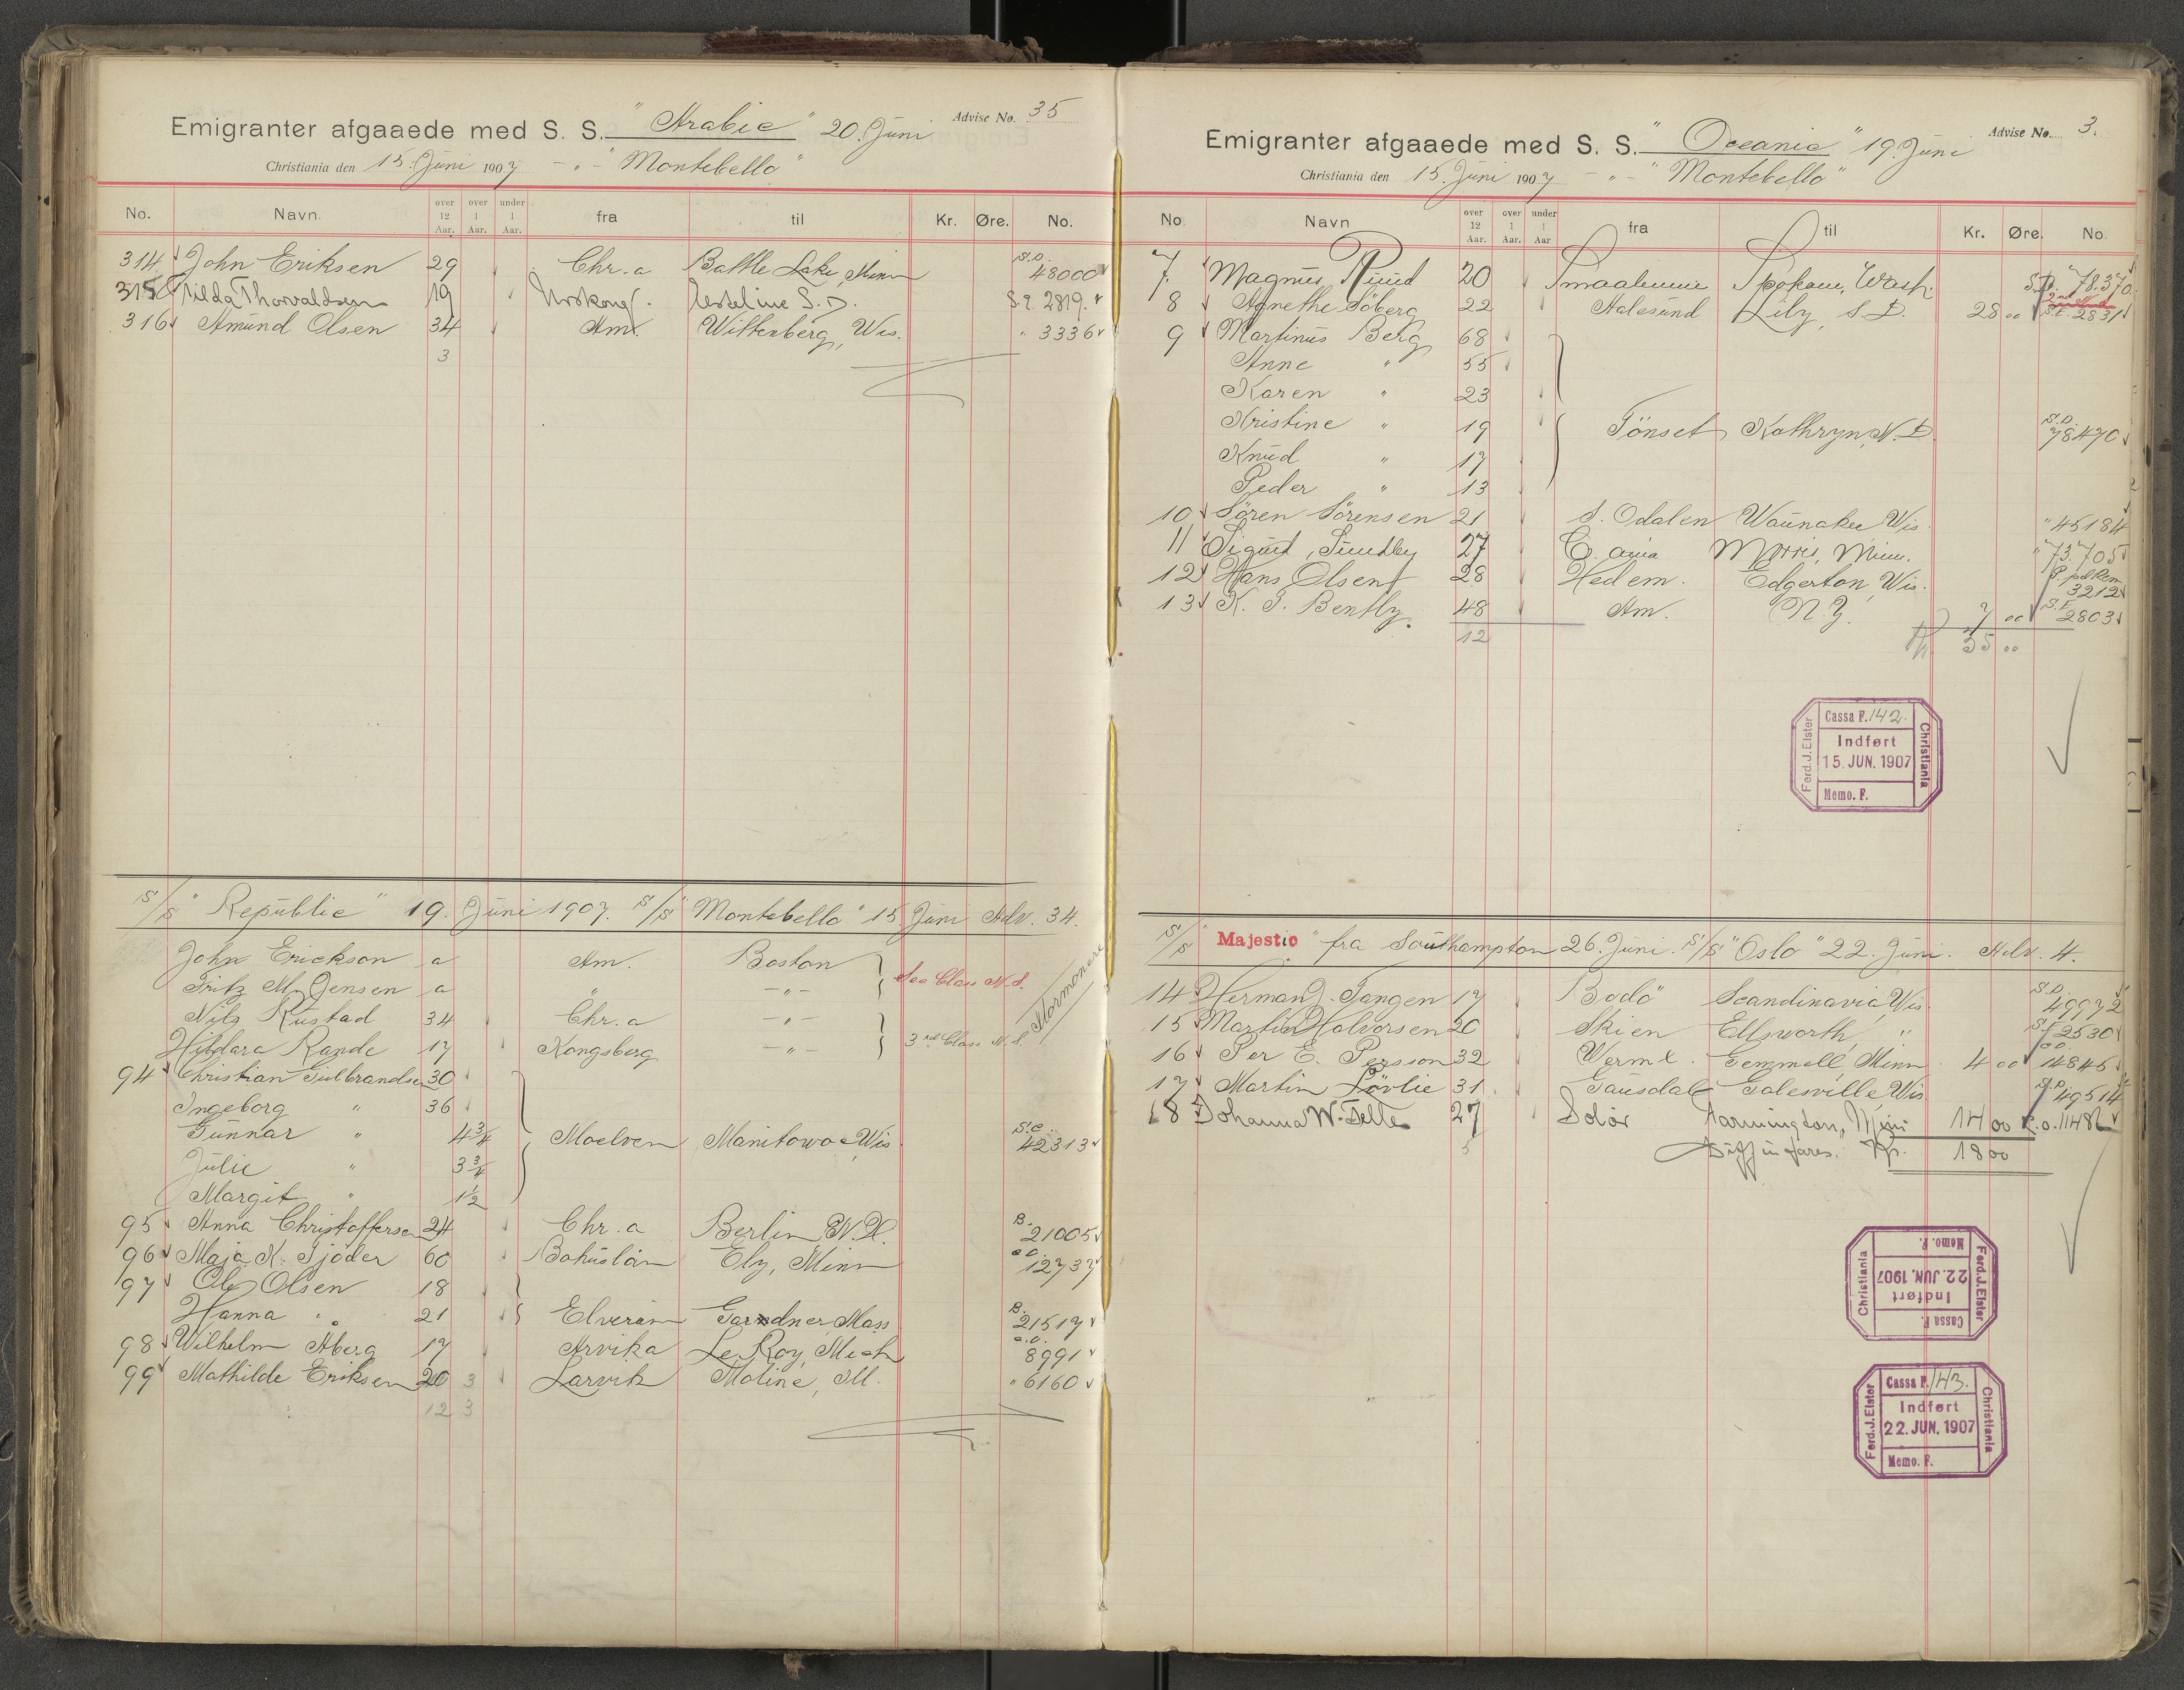 Emigranter afgaaede med S. S. "Arabic" 20. Juni Advise No. 35
Christiania den 15. Juni 1907 - " - "Montebello"
No. Navn. over 12 Aar. over 1 Aar. under 1 Aar. fra til Kr. Øre. No.
314 John Eriksen 29 Chr.a Battle Lake, Minn S.D. 48000
315 Hilda Thorvaldsen 19 Urskoug Esteline S.D. S.E. 2819.
316 Amund Olsen 34 Am. Wittenberg, Wis. " 3336
3
S/S "Republic" 19. Juni 1907. S/S "Montebello" 15 Juni Adv. 34.
John Erickson a Am. Boston
Fritz M. Jensen a " - " - Sec Class N.S.
Nils Rustad 34 Chr.a - " - Mormonere
Hildara Rande 17 Kongsberg - " - 3rd Class N.S.
94 Christian Gulbrandsen 30
Ingeborg " 36
Gunnar " 4 3/4 Moelven Manitowoc Wis S.C. 42313
Julie " 3 3/4
Margit " 1 1/2
95 Anna Christoffersen 24 Chr.a Berlin N.H. B. 21005
96 Maja K. Sjöder 60 Bohuslän Ely, Minn C.O. 12737
97 Ole Olsen 18
Hanna " 21 Elverum Gardner Mass B. 21517
98 Wilhelm Åberg 17 Arvika Le Roy, Mich C.O. 8991
99 Mathilde Eriksen 20 3 Larvik Moline, Ill. " 6160
12 3
Emigranter afgaaede med S. S. "Oceanic" 19. Juni Advise No. 3.
Christiania den 15. Juni 1907 - " - "Montebello"
No. Navn over 12 Aar. over 1 Aar. under 1 Aar fra til Kr. Øre. No.
7. Magnus Ruud 20 Smaalenene Spokane, Wash. S.D. 78.370
8 Agnethe Söberg 22 Aalesund Lily, S.D. 28 00 S.E. 2831
9 Martinus Berg 68
Anne " 55
Karen " 23
Kristine " 19 Tönset Kathryn, N.D. S.D. 78470
Knud " 17
Peder " 13
10 Sören Sörensen 21 S. Odalen Waunakee Wis " 45184
11 Sigurd Sundby 27 C. ania Morris, Minn. " 73705
12 Hans Olsen 28 Hedem. Edgerton, Wis. 3212
13 K. T. Bently 48 Am. N.Y. 7 00 S.E. 2803
12 Kr. 35 00
Cassa F. 142.
Indført
15. JUN. 1907
Memo. F.
Ferd. J. Elster
Christiania
S/S "Majestic" fra Southampton 26. Juni. S/S "Oslo" 22. Juni. Adv. 4.
14 Herman J. Tangen 17 Bodö Scandinavia, Wis S.D. 49972
15 Martin Halvorsen 20 Skien Ellsworth, " 2530
16 Per E. Persson 32 Werml. Gemmell, Minn 4 00 C.O. 14845
17 Martin Lövlie 31 Gausdal Galesville, Wis S.D. 49514
18 Johanna W. Felle 27 Solør Farmington, Minn 14 00 C.O. 11486
5 Diff in fares. Kr. 18 00
Cassa F.
Indført
22. JUN. 1907
Memo. F.
Ferd. J. Elster
Christiania
Cassa F. 143.
Indført
22. JUN. 1907
Memo. F.
Ferd. J. Elster
Christiania